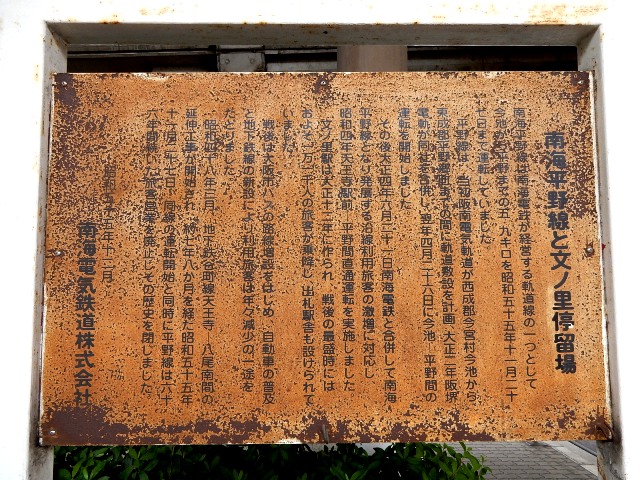 南海平野線と文ノ里停留場
南海平野線は南海電鉄が経営する軌道線の一つとして
今池から平野までの五.九キロを昭和五十五年十一月二十
七日まで運転していました
平野線は 当初阪南電気軌道が西成郡今宮村今池から
東成郡平野郷町までの間に軌道敷設を計画 大正二年阪堺
電軌が同社を合併し 翌年四月二十六日に今池 平野間の
運転を開始しました
その後大正四年六月二十一日南海電鉄と合併して南海
平野線となり発展する沿線利用旅客の激増に対応し
昭和四年天王寺駅前 平野間直通運転を実施しました
文ノ里駅は大正十二年に作られ 戦後の最盛時には
およそ一万二千人の旅客が乗降し 出札駅舎も設けられて
いました
戦後は大阪市バスの路線増設をはじめ 自動車の普及
と地下鉄線の新設により利用旅客は年々減少の一途を
たどりました
昭和四十八年三月 地下鉄谷町線天王寺 八尾南間の
延伸工事が開始され 約七年八か月を経た昭和五十五年
十一月二十七日 同線の運転開始と同時に平野線は六十
六年続いた旅客営業を廃止しその歴史を閉じました
昭和五十五年十二月
南海電気鉄道株式会社